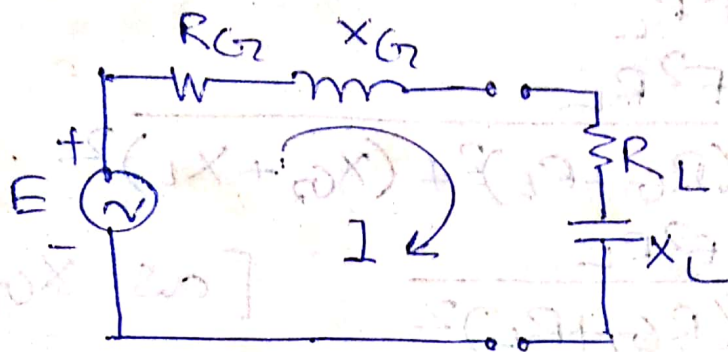 R_G X_G
+
E
-
I
R_L
X_L